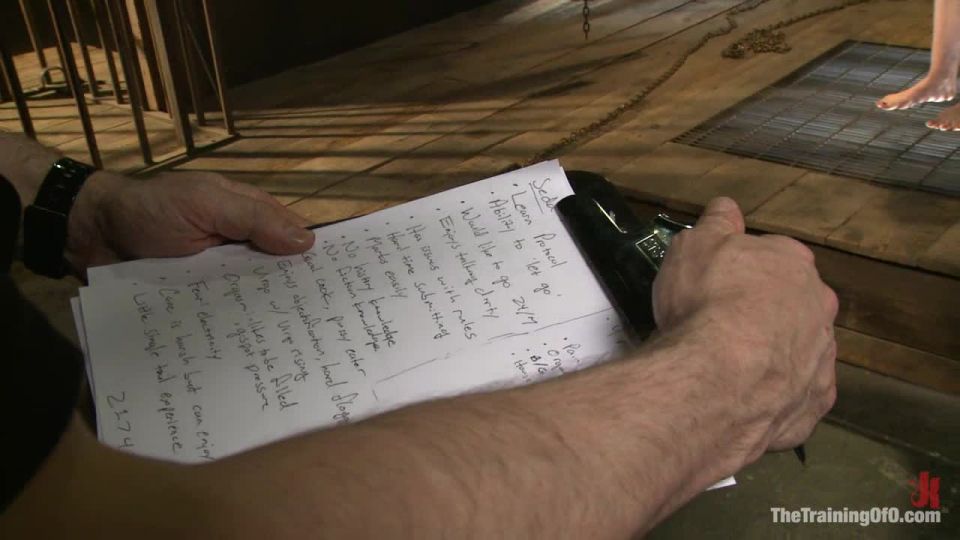 Sedu
• Learn Protocol
• Ability to 'let go'
• Would like to go 24/7
• Enjoys talking dirty
• Has issues with rules
• Hard time submitting
• Marks easily
• No history knowledge
• No fiction knowledge
cock, pussy eater
Enjoys objectification, hard flogg
Strap w/ Virgo rising
Orgasm: likes to be filled
, gspot pressure
• Fears electricity
• Cane is harsh but can enjoy
• Little single tail experience
2274
• Pain
• Orga
• B/G
TheTrainingOfO.com